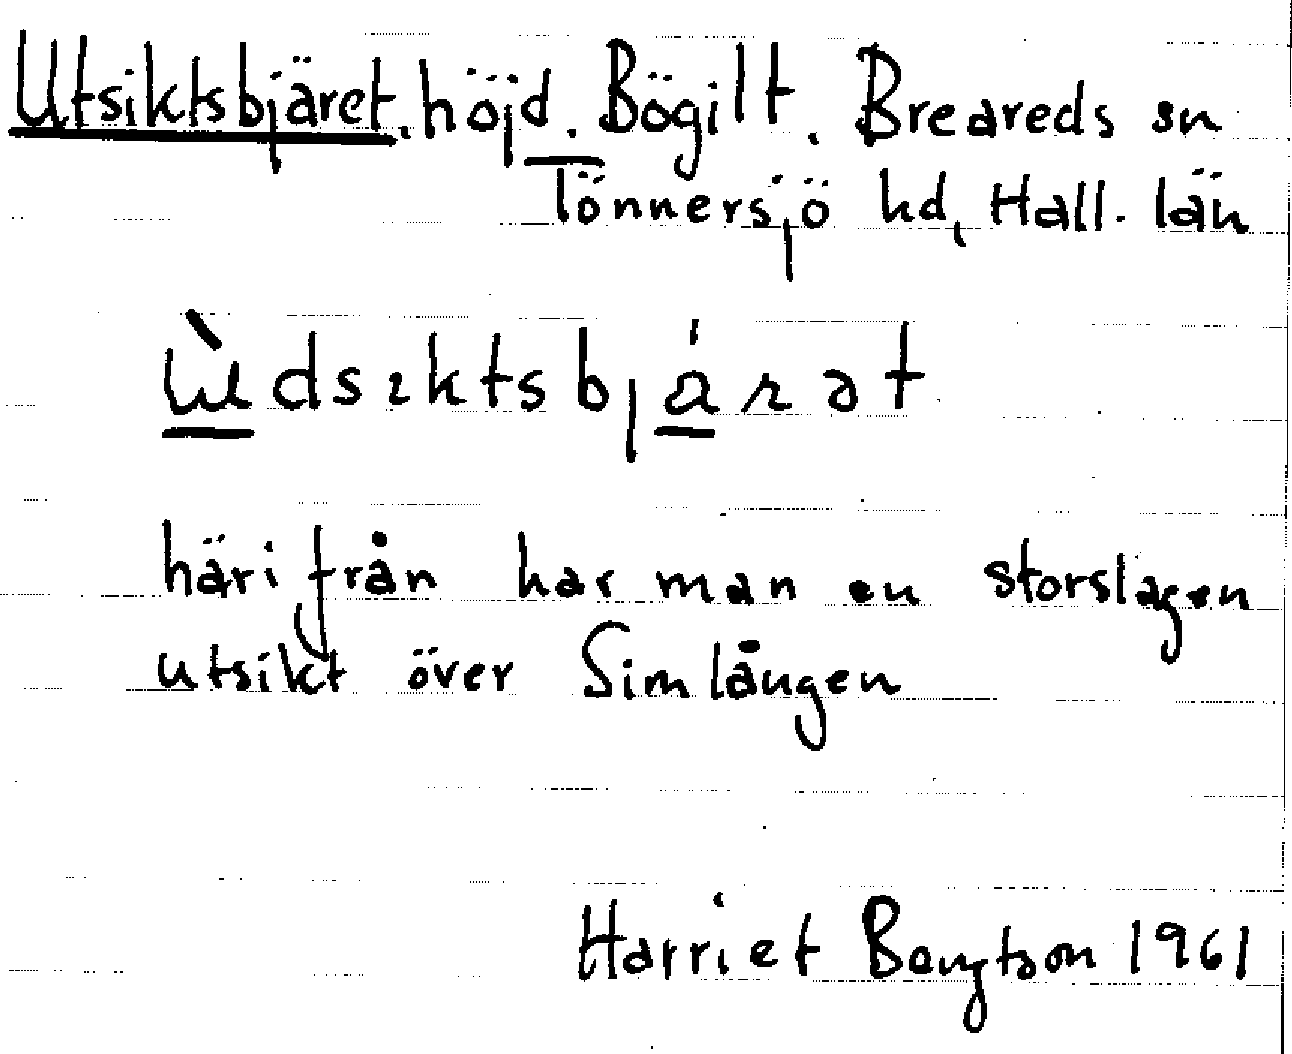 Utsiktsbjäret. höjd. Bögilt. Breareds sn
Tönnersjö hd, Hall. län
ùdsıktsbjárət
härifrån har man en storslagen
utsikt över Simlången
Harriet Bengtson 1961